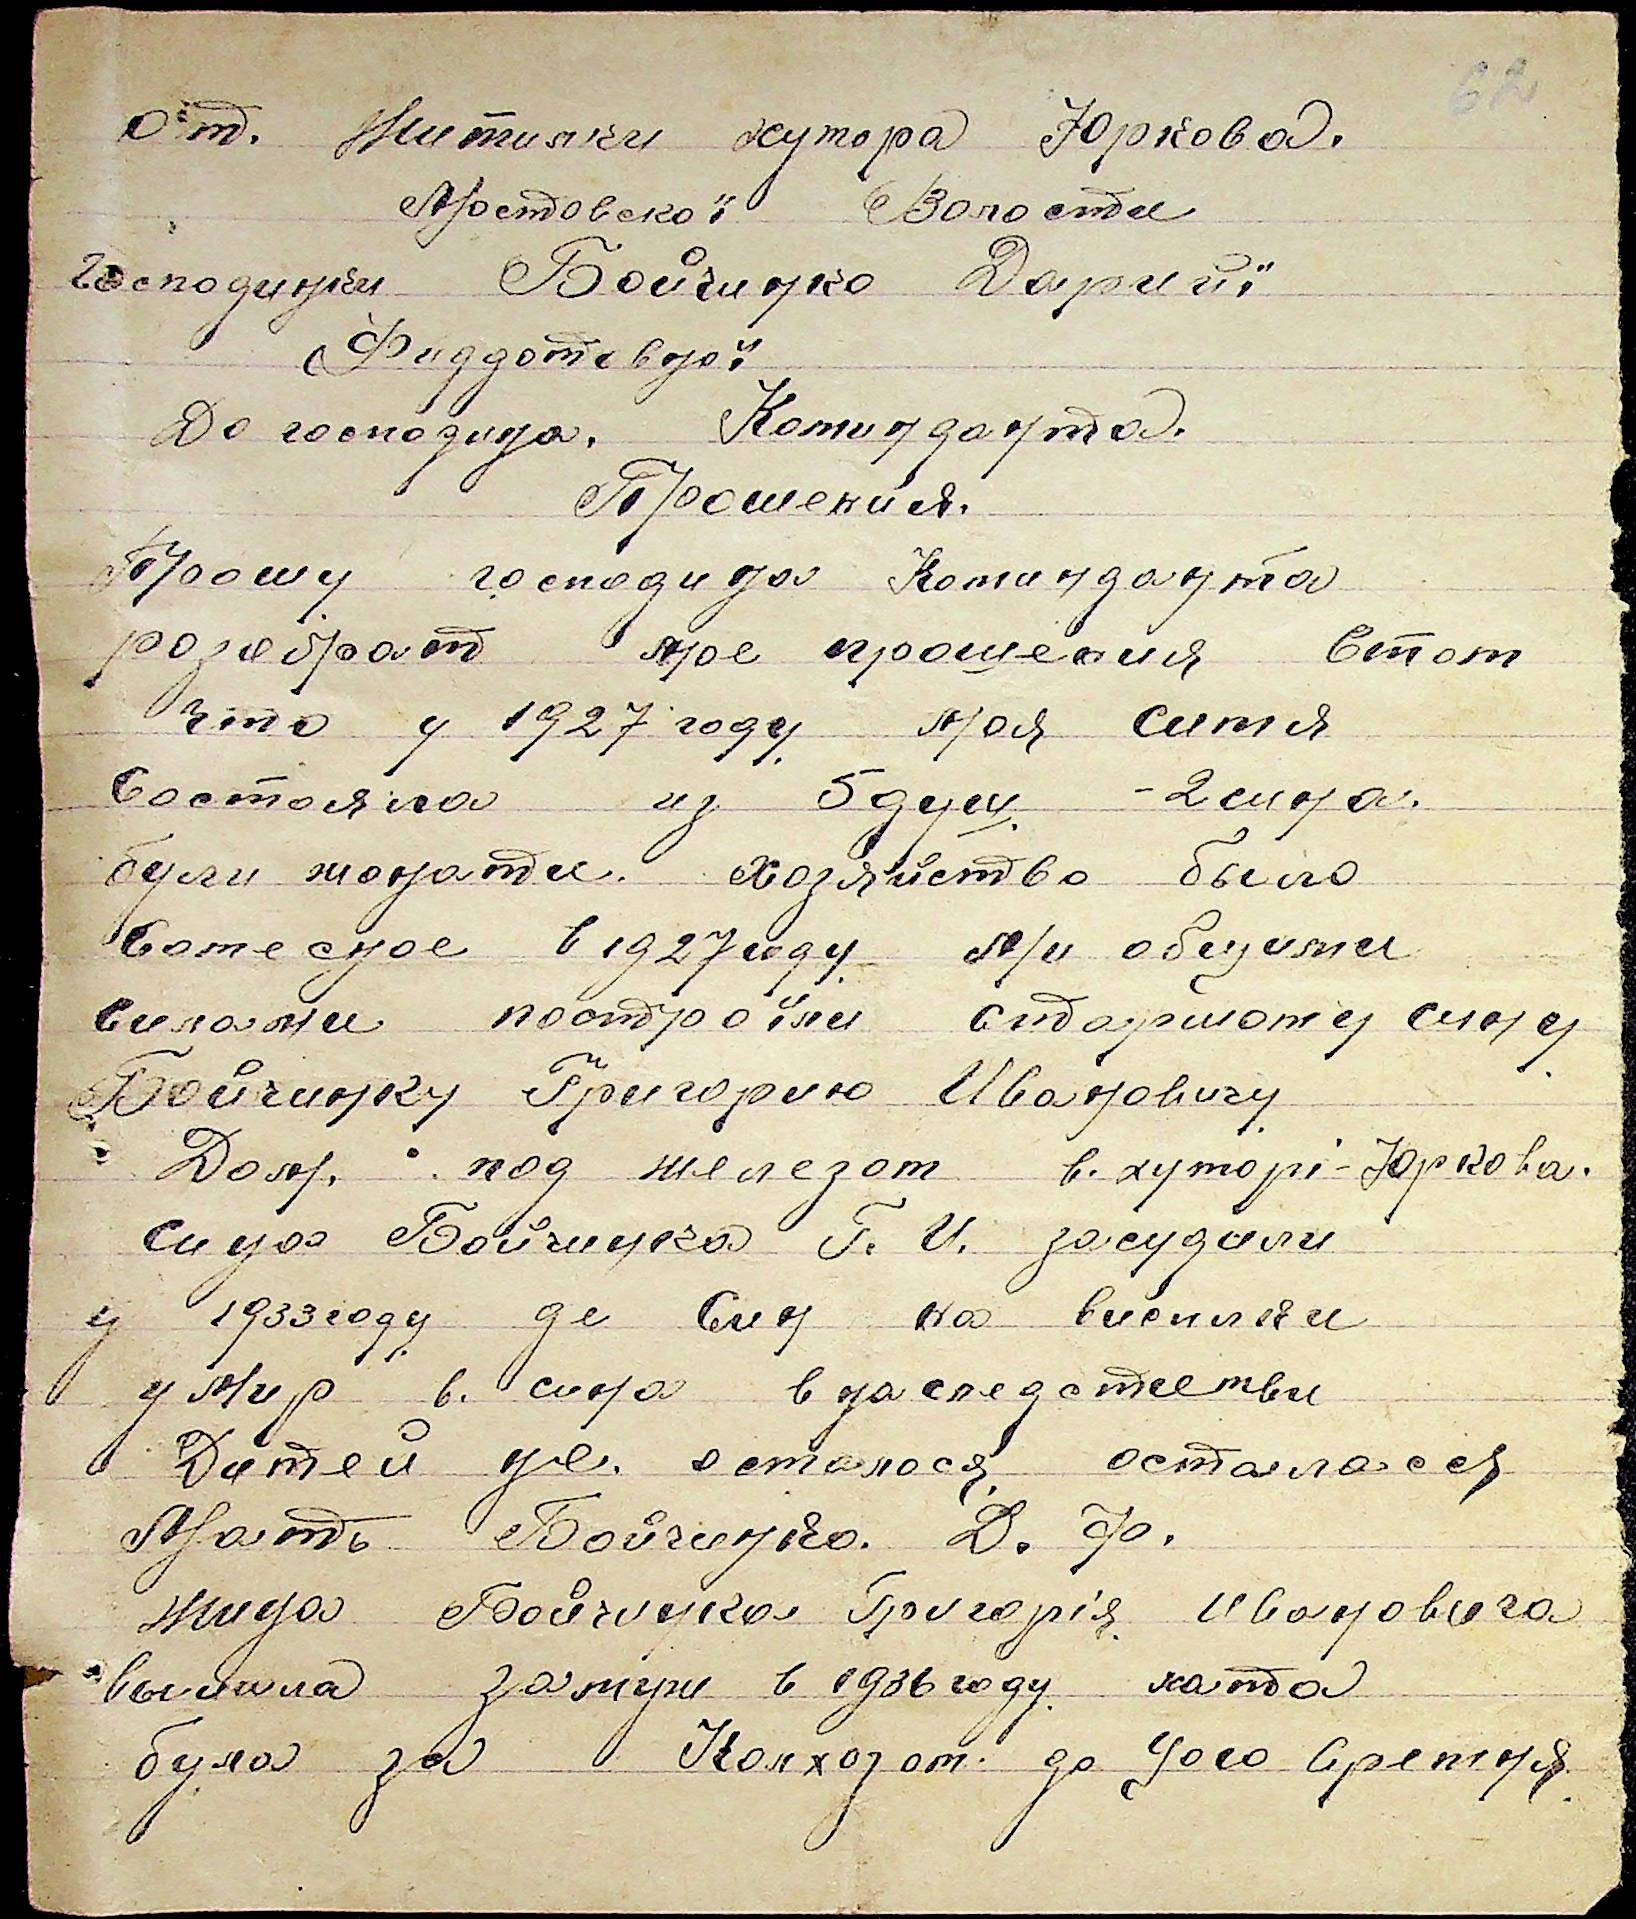 62
От. Житилки хутора Юркова.
Мостовскої Волости
Господинки Бойчинко Дариї
Фиддотевної
До господина. Коминданта.
Прошения.
Прошу господина Коминданта
розебрат мое прошения втом
что у 1927 году моя симя
состояла из 5 душ - 2 сина.
були жонати. хозяйство было
сомесное в 1927 году ми общими
силами построїли старшому сину
Бойчинку Григорию Ивановичу
Дом. под железом в. хуторі - Юркова.
сина Бойчинка Г. И. засудили
у 1933 году де син на висилки
умир в. сина в наследстви
Дитей не. осталося осталасся
Мать Бойчинко. Д. Ф.
жина Бойчинка Григорія Ивановича
вышла замуж в 1936 году хата
була за Колхозом. до Цого времня.